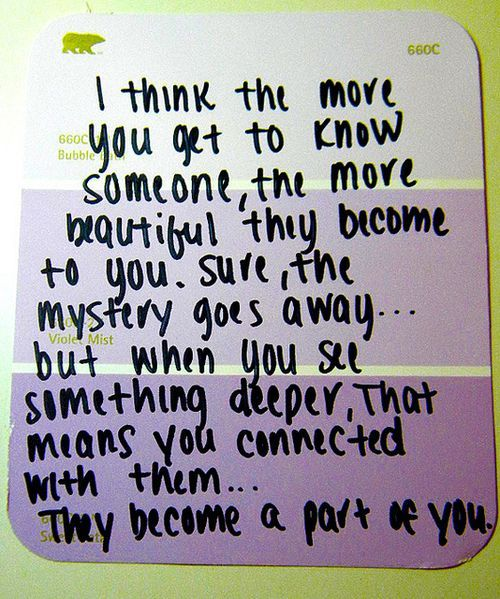 660C
I think the more
you get to know
someone, the more
beautiful they become
to you. Sure, the
mystery goes away...
but when you see
something deeper, That
means you connected
with them...
They become a part of you.
660C
Bubble
Violet Mist